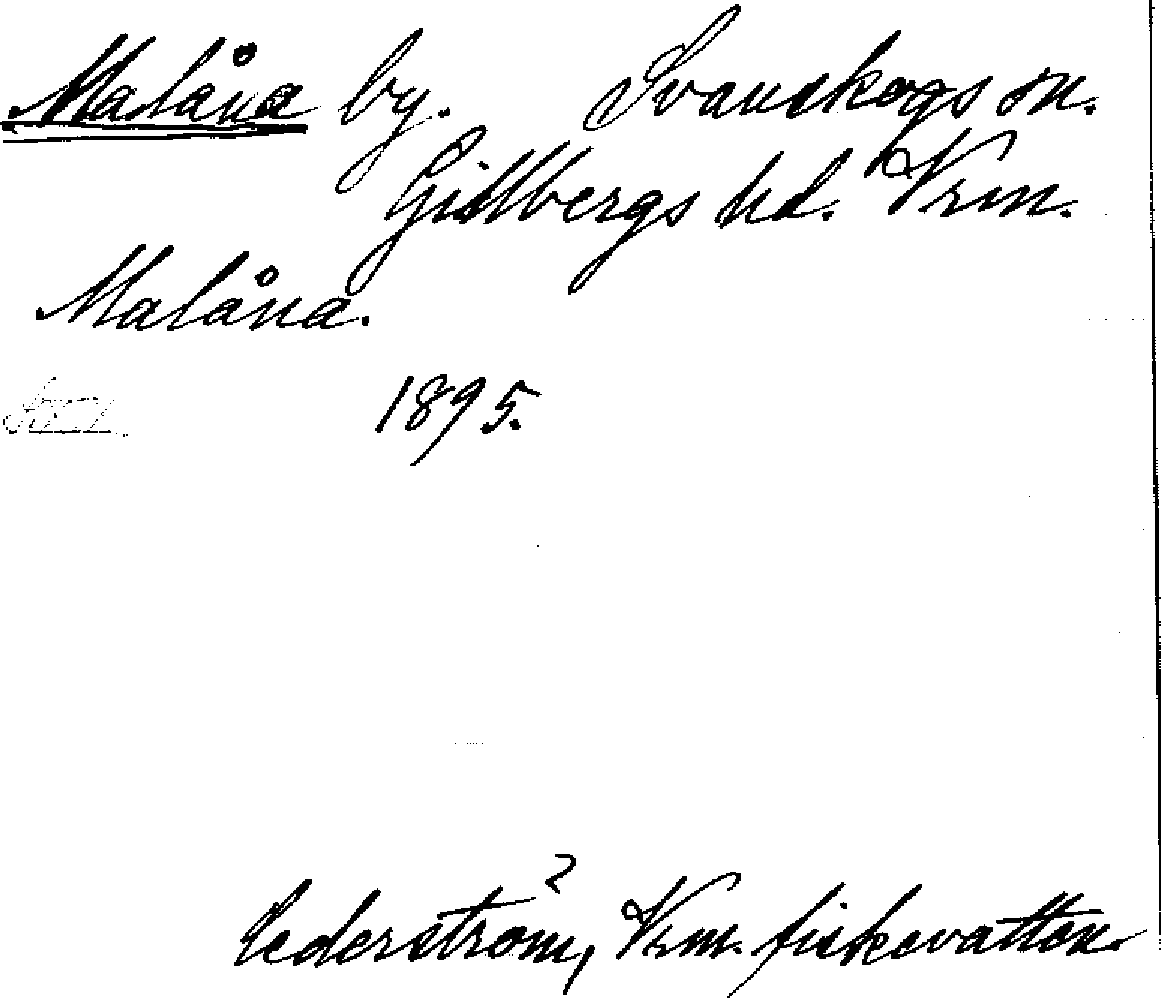 Malåna by. Svanskogs sn.
Gillbergs hd. Vrm.
Malåna.
1895.
Cederström, Vrm. fiskevatten.